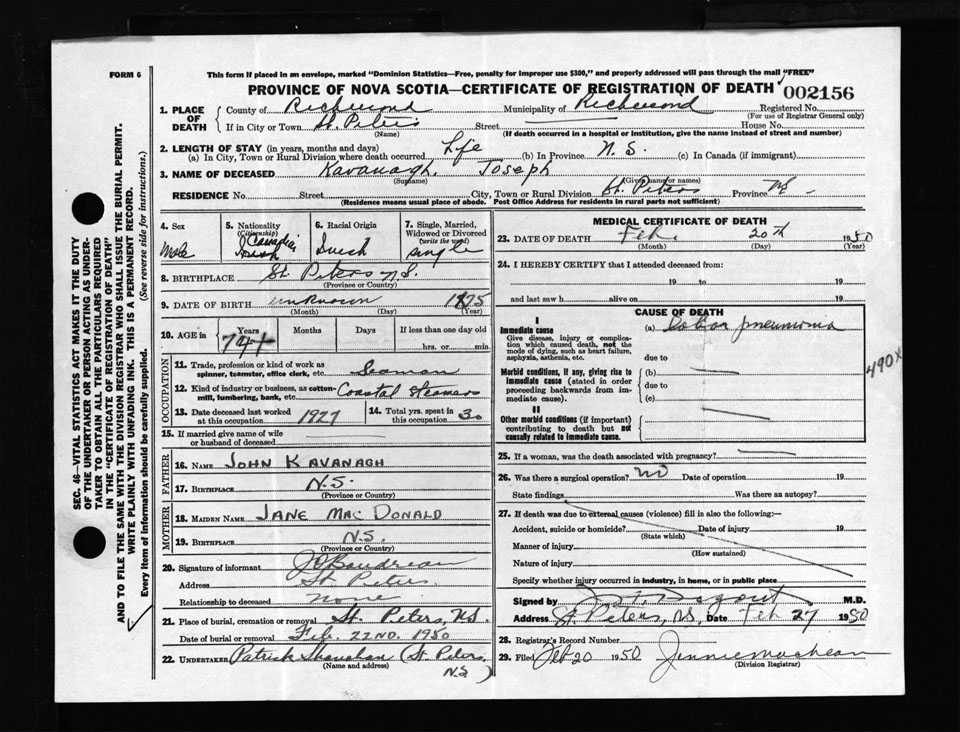 FORM 6
This form if placed in an envelope, marked "Dominion Statistics—Free, penalty for improper use $300," and properly addressed will pass through the mail "FREE"
PROVINCE OF NOVA SCOTIA—CERTIFICATE OF REGISTRATION OF DEATH 002156
1. PLACE OF DEATH County of Richmond Municipality of Richmond Registered No.
(For use of Registrar General only)
If in City or Town St. Peters Street House No.
(Name) (If death occurred in a hospital or institution, give the name instead of street and number)
2. LENGTH OF STAY (in years, months and days)
(a) In City, Town or Rural Division where death occurred Life (b) In Province N.S. (c) In Canada (if immigrant)
3. NAME OF DECEASED Kavanagh, Joseph
(Surname) (Given name or names)
RESIDENCE No. Street City, Town or Rural Division St. Peters Province NS
(Residence means usual place of abode. Post Office Address for residents in rural parts not sufficient)
4. Sex Male
5. Nationality (Citizenship) Canadian
6. Racial Origin
7. Single, Married, Widowed or Divorced (write the word) single
8. BIRTHPLACE St. Peters N.S.
(Province or Country)
9. DATE OF BIRTH unknown 1875
(Month) (Day) (Year)
10. AGE in Years Months Days If less than one day old
74 hrs. or min.
OCCUPATION
11. Trade, profession or kind of work as spinner, teamster, office clerk, etc. Seaman
12. Kind of industry or business, as cotton-mill, lumbering, bank, etc. Coastal Steamers
13. Date deceased last worked at this occupation 1927 14. Total yrs. spent in this occupation 30
15. If married give name of wife or husband of deceased
FATHER
16. NAME JOHN KAVANAGH
17. BIRTHPLACE N.S.
(Province or Country)
MOTHER
18. MAIDEN NAME JANE MACDONALD
19. BIRTHPLACE N.S.
(Province or Country)
20. Signature of informant Boudreau
Address St Peters
Relationship to deceased none
21. Place of burial, cremation or removal St. Peters, NS.
Date of burial or removal Feb. 22ND. 1950
22. UNDERTAKER Patrick Shanahan (St. Peters, N.S)
(Name and address)
MEDICAL CERTIFICATE OF DEATH
23. DATE OF DEATH Feb. 20th 1950
(Month) (Day) (Year)
24. I HEREBY CERTIFY that I attended deceased from:
19 to 19
and last saw h alive on 19
CAUSE OF DEATH
I
Immediate cause (a) Lobar pneumonia
Give disease, injury or complication which caused death, not the mode of dying, such as heart failure, asphyxia, asthenia, etc. due to
490X
Morbid conditions, if any, giving rise to immediate cause (stated in order proceeding backwards from immediate cause). (b) due to (c)
II
Other morbid conditions (if important) contributing to death but not causally related to immediate cause.
25. If a woman, was the death associated with pregnancy?
26. Was there a surgical operation? no Date of operation 19
State findings Was there an autopsy?
27. If death was due to external causes (violence) fill in also the following:—
Accident, suicide or homicide? Date of injury 19
(State which)
Manner of injury
(How sustained)
Nature of injury
Specify whether injury occurred in industry, in home, or in public place
Signed by M.D.
Address St. Peters, NS, Date Feb 27 1950
28. Registrar's Record Number
29. Filed Feb 20 1950 Jennie MacLean
(Division Registrar)
SEC. 46—VITAL STATISTICS ACT MAKES IT THE DUTY
OF THE UNDERTAKER OR PERSON ACTING AS UNDER-
TAKER TO OBTAIN ALL THE PARTICULARS REQUIRED
IN THE "CERTIFICATE OF REGISTRATION OF DEATH"
AND TO FILE THE SAME WITH THE DIVISION REGISTRAR WHO SHALL ISSUE THE BURIAL PERMIT.
WRITE PLAINLY WITH UNFADING INK. THIS IS A PERMANENT RECORD.
Every item of information should be carefully supplied. (See reverse side for instructions.)